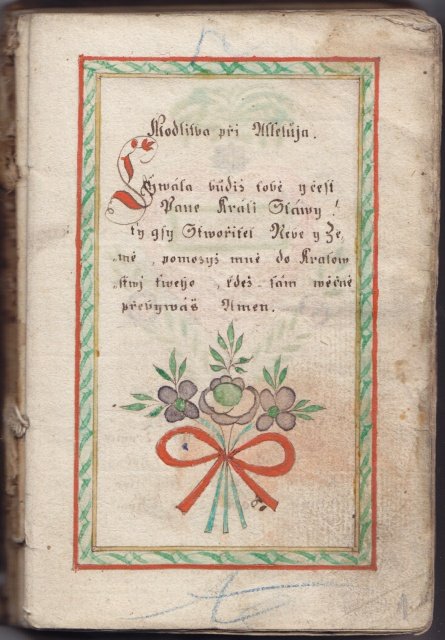 Modlitba při Alleluja.
Chwála budiž tobě y čest
Pane Králi Sláwy!
ty gsy Stwořitel Nebe y Ze,
mě, pomozyž mně do Kralow
„stwj twého, kdež sám wěčně
přebywáš Amen.